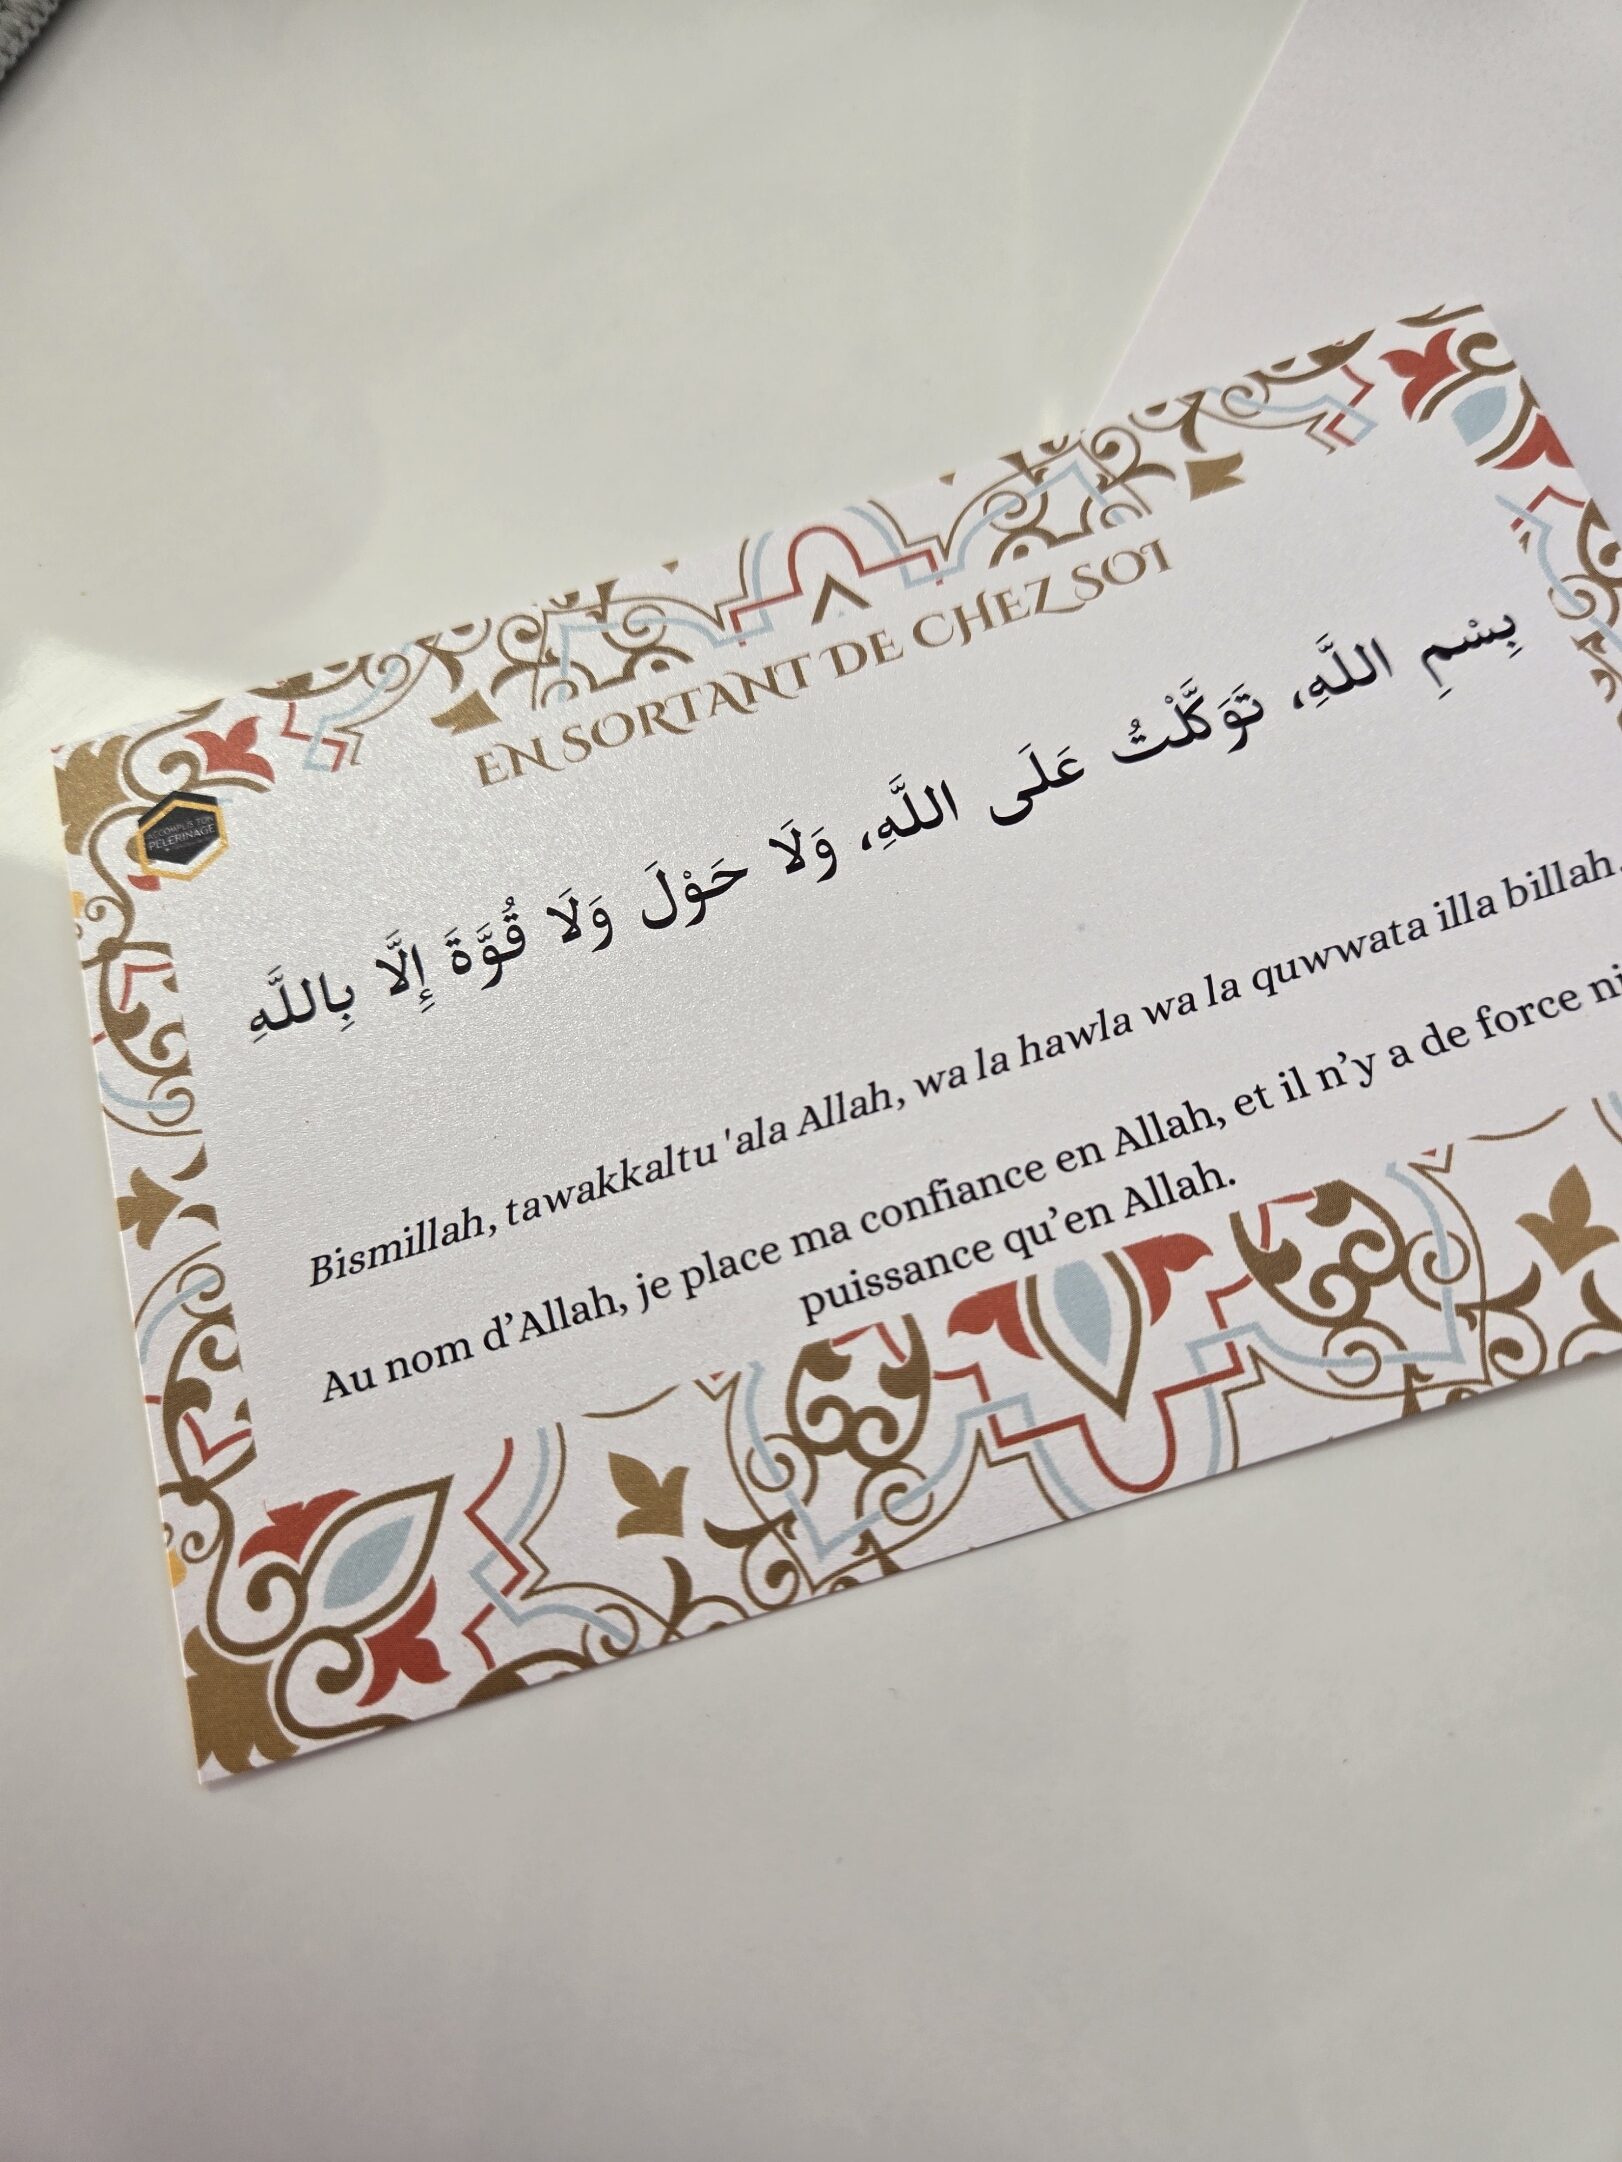 EN SORTANT DE CHEZ SOI
ACCOMPLIS TON
PÈLERINAGE
بِسْمِ اللَّهِ، تَوَكَّلْتُ عَلَى اللَّهِ، وَلَا حَوْلَ وَلَا قُوَّةَ إِلَّا بِاللَّهِ
Bismillah, tawakkaltu 'ala Allah, wa la hawla wa la quwwata illa billah.
Au nom d’Allah, je place ma confiance en Allah, et il n’y a de force ni
puissance qu’en Allah.